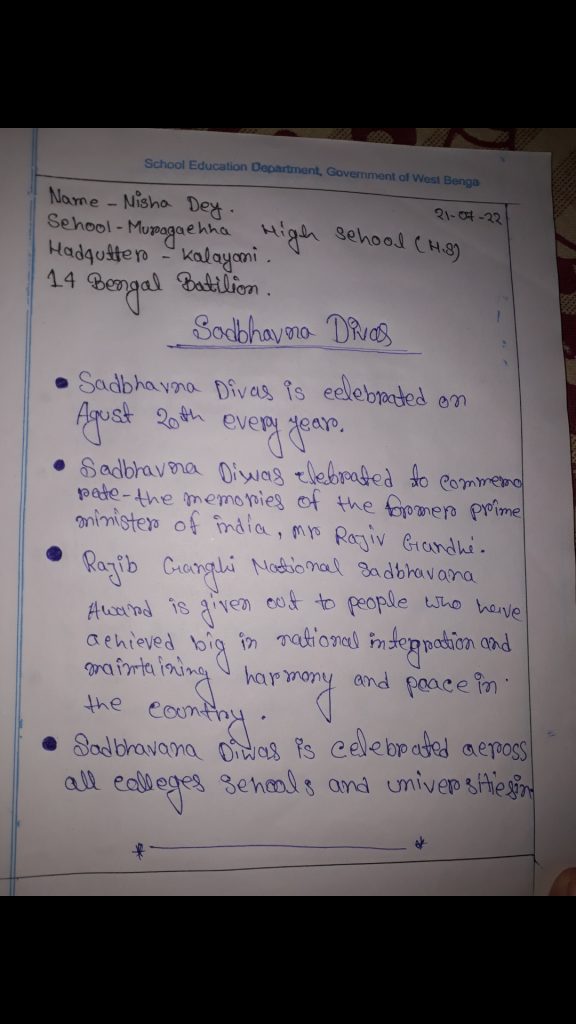 School Education Department, Government of West Benga
Name - Nisha Dey.
21-07-22
School - Muragachha High School (H.S)
Hadqutter - Kalayani.
14 Bengal Batilion.
Sadbhavna Divas
• Sadbhavna Divas is celebrated on
Agust 20th every year.
• Sadbhavna Diwas clebrated to commemo
rate - the memories of the former prime
minister of india, mr Rajiv Gandhi.
• Rajib Ganghi National Sadbhavana
Award is given out to people who have
achieved big in national integration and
maintaining harmony and peace in
the country.
• Sadbhavana Diwas is celebrated across
all colleges schools and universities in